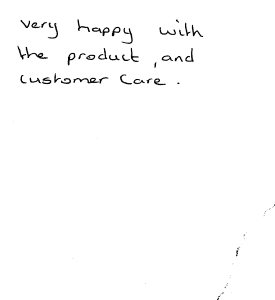 very happy with
the product, and
customer care.